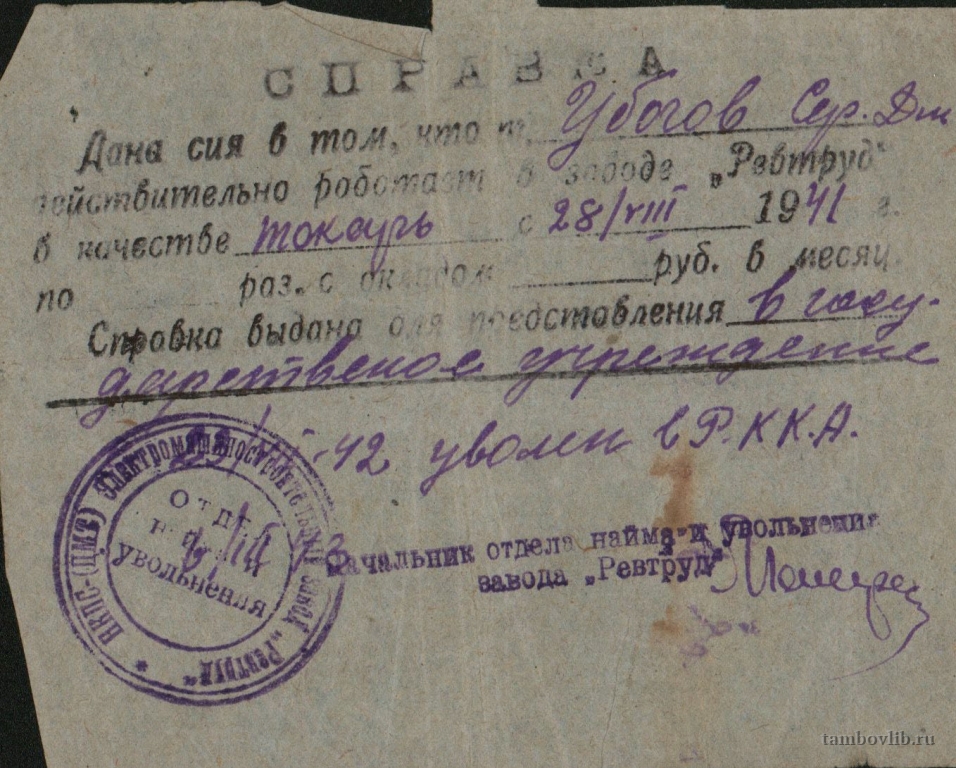 СПРАВКА
Дана сия в том, что т. Убогов Сер. Дм
действительно работает в заводе „Ревтруд“
в качестве токарь с 28/VIII 1941 г.
по раз. с окладом руб. в месяц.
Справка выдана для представления в госу-
дарственое учреждение
-42 уволен в Р.К.К.А.
Начальник отдела найма и увольнения
завода „Ревтруд“
НКПС-(ЦМТ) Электромашиностроительный завод „Ревтруд“ *
Отдел
увольнения
tambovlib.ru